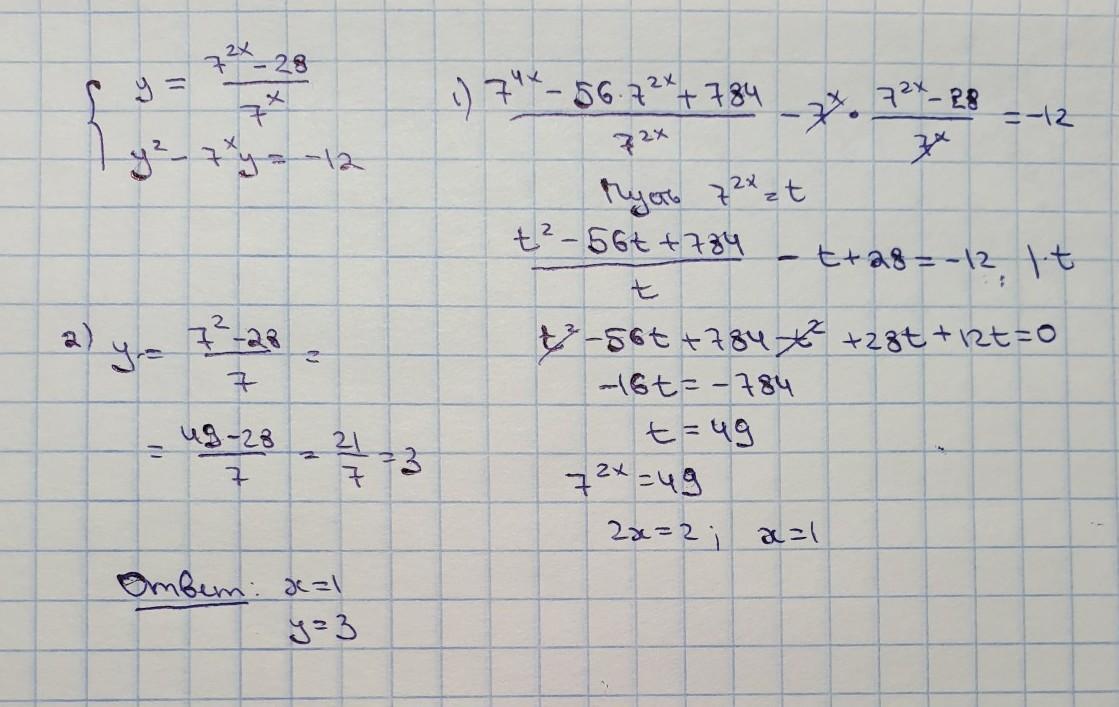 y = (7^{2x} - 28)/7^x
y² - 7^x y = -12
1) (7^{4x} - 56·7^{2x} + 784)/7^{2x} - 7^x · (7^{2x} - 28)/7^x = -12
Пусть 7^{2x} = t
(t² - 56t + 784)/t - t + 28 = -12; |·t
t² - 56t + 784 - t² + 28t + 12t = 0
-16t = -784
t = 49
7^{2x} = 49
2x = 2; x = 1
2) y = (7² - 28)/7 =
= (49 - 28)/7 = 21/7 = 3
Ответ: x = 1
y = 3